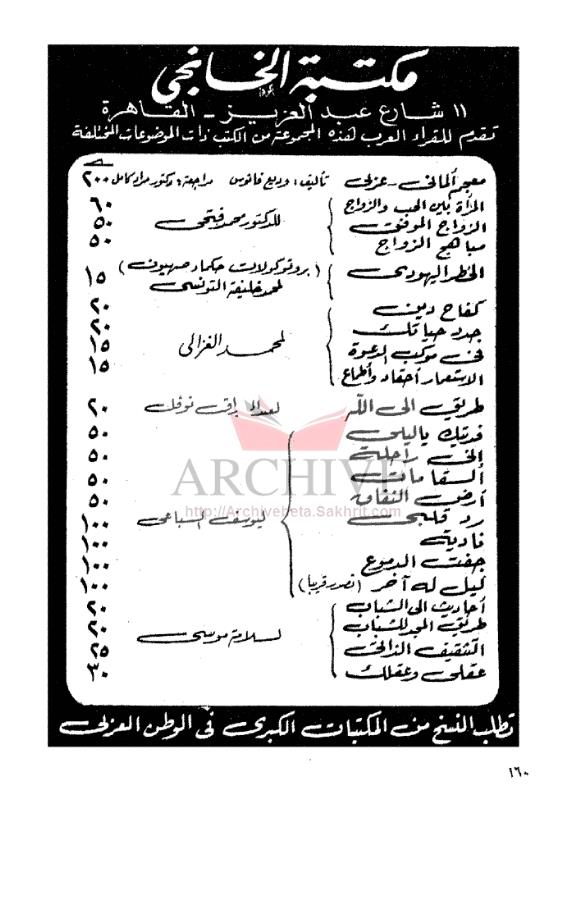 مكتبة الخانجي
١١ شارع عبد العزيز - القاهرة
تقدم للقراء العرب هذه المجموعة من الكتب ذات الموضوعات المختلفة
معجم ألماني - عربي تأليف : وديع فانوس مراجعة : دكتور مراد كامل ٢٠٠
المرأة بين الحب والزواج ٦٠
الزواج الموفق للدكتور محمد فتحي ٥٠
مباهج الزواج ٥٠
الخطر اليهودي (بروتوكولات حكماء صهيون) ١٥
لمحمد خليفة التونسي
كفاح دين ٢٠
جدد حياتك ٢٠
في موكب الدعوة لمحمد الغزالي ١٥
الاستعمار أحقاد وأطماع ١٥
طريقي الى الله لعبد الرازق نوفل ٢٠
فديتك ياليلى ٥٠
إني راحلة ٥٠
ARCHIVE
السقا مات ٥٠
أرض النفاق ٥٠
http://Archivebeta.Sakhrit.com
رد قلبي ليوسف السباعي ١٠٠
نادية ١٠٠
جفت الدموع ١٠٠
ليل له آخر (تصدر قريبا) ١٠٠
أحاديث الى الشباب ٢٠
طريق المجد للشباب ٢٠
التثقيف الذاتي لسلامة موسى ٢٥
عقلي وعقلك ٣٠
تطلب النسخ من المكتبات الكبرى في الوطن العربي
١٦٠